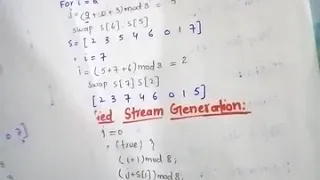 For i = 6
j = (9+0+3) mod 8 =
swap S[6] . S[5]
S = [ 2 3 5 4 6 0 1 7 ]
i = 7
j = (5+7+6) mod 8 = 2
swap S[7] S[2]
[ 2 3 7 4 6 0 1 5 ]
7 ]
ied Stream Generation:
j = 0
(true) }
(i+1) mod 8;
(j+S[i]) mod 8;